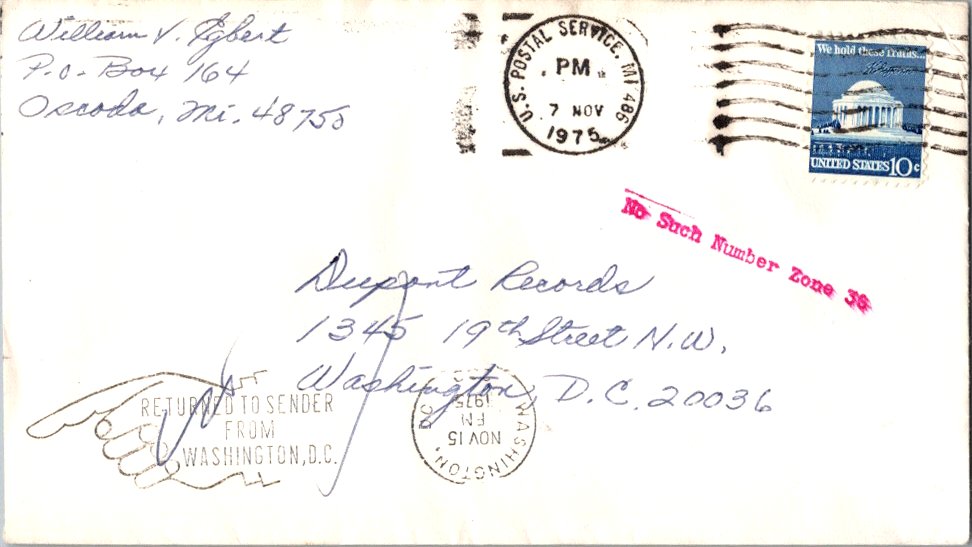 William V. Egbert
P.O. Box 164
Oscoda, Mi. 48750
U.S. POSTAL SERVICE, MI 486
PM
7 NOV
1975
We hold these Truths...
UNITED STATES 10c
No Such Number Zone 36
Dupont Records
1345 19th Street N.W.
Washington, D.C. 20036
RETURNED TO SENDER
FROM
WASHINGTON, D.C.
WASHINGTON, DC
NOV 15
PM
1975